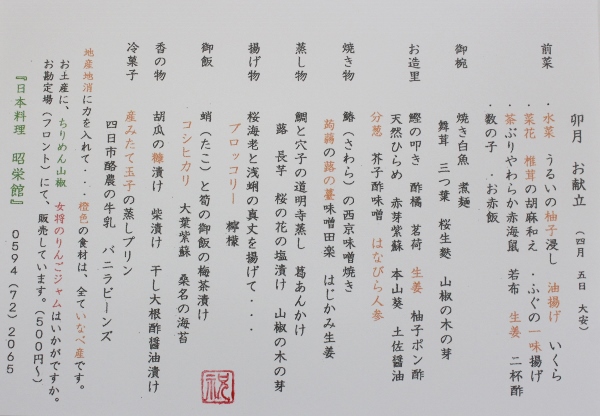 卯月 お献立 (四月 五日 大安)
前菜 ・水菜 うるいの柚子浸し 油揚げ いくら
・菜花 椎茸の胡麻和え ・ふぐの一味揚げ
・茶ぶりやわらか赤海鼠 若布 生姜 二杯酢
・数の子 ・お赤飯
御椀 焼き白魚 煮麺
舞茸 三つ葉 桜生麩 山椒の木の芽
お造里 鰹の叩き 酢橘 茗荷 生姜 柚子ポン酢
天然ひらめ 赤芽紫蘇 本山葵 土佐醤油
分葱 芥子酢味噌 はなびら人参
焼き物 鰆(さわら)の西京味噌焼き
蒟蒻の蕗の薹味噌田楽 はじかみ生姜
蒸し物 鯛と穴子の道明寺蒸し 葛あんかけ
蕗 長芋 桜の花の塩漬け 山椒の木の芽
揚げ物 桜海老と浅蜊の真丈を揚げて・・・
ブロッコリー 檸檬
御飯 蛸(たこ)と筍の御飯の梅茶漬け
コシヒカリ 大葉紫蘇 桑名の海苔
香の物 胡瓜の糠漬け 柴漬け 干し大根酢醤油漬け
冷菓子 産みたて玉子の蒸しプリン
四日市酪農の牛乳 バニラビーンズ
地産地消に力を入れて・・・橙色の食材は、全ていなべ産です。
お土産に、ちりめん山椒 女将のりんごジャムはいかがですか。
お勘定場(フロント)にて、販売しています。(500円~)
『日本料理 昭栄館』 0594(72)2065
祝